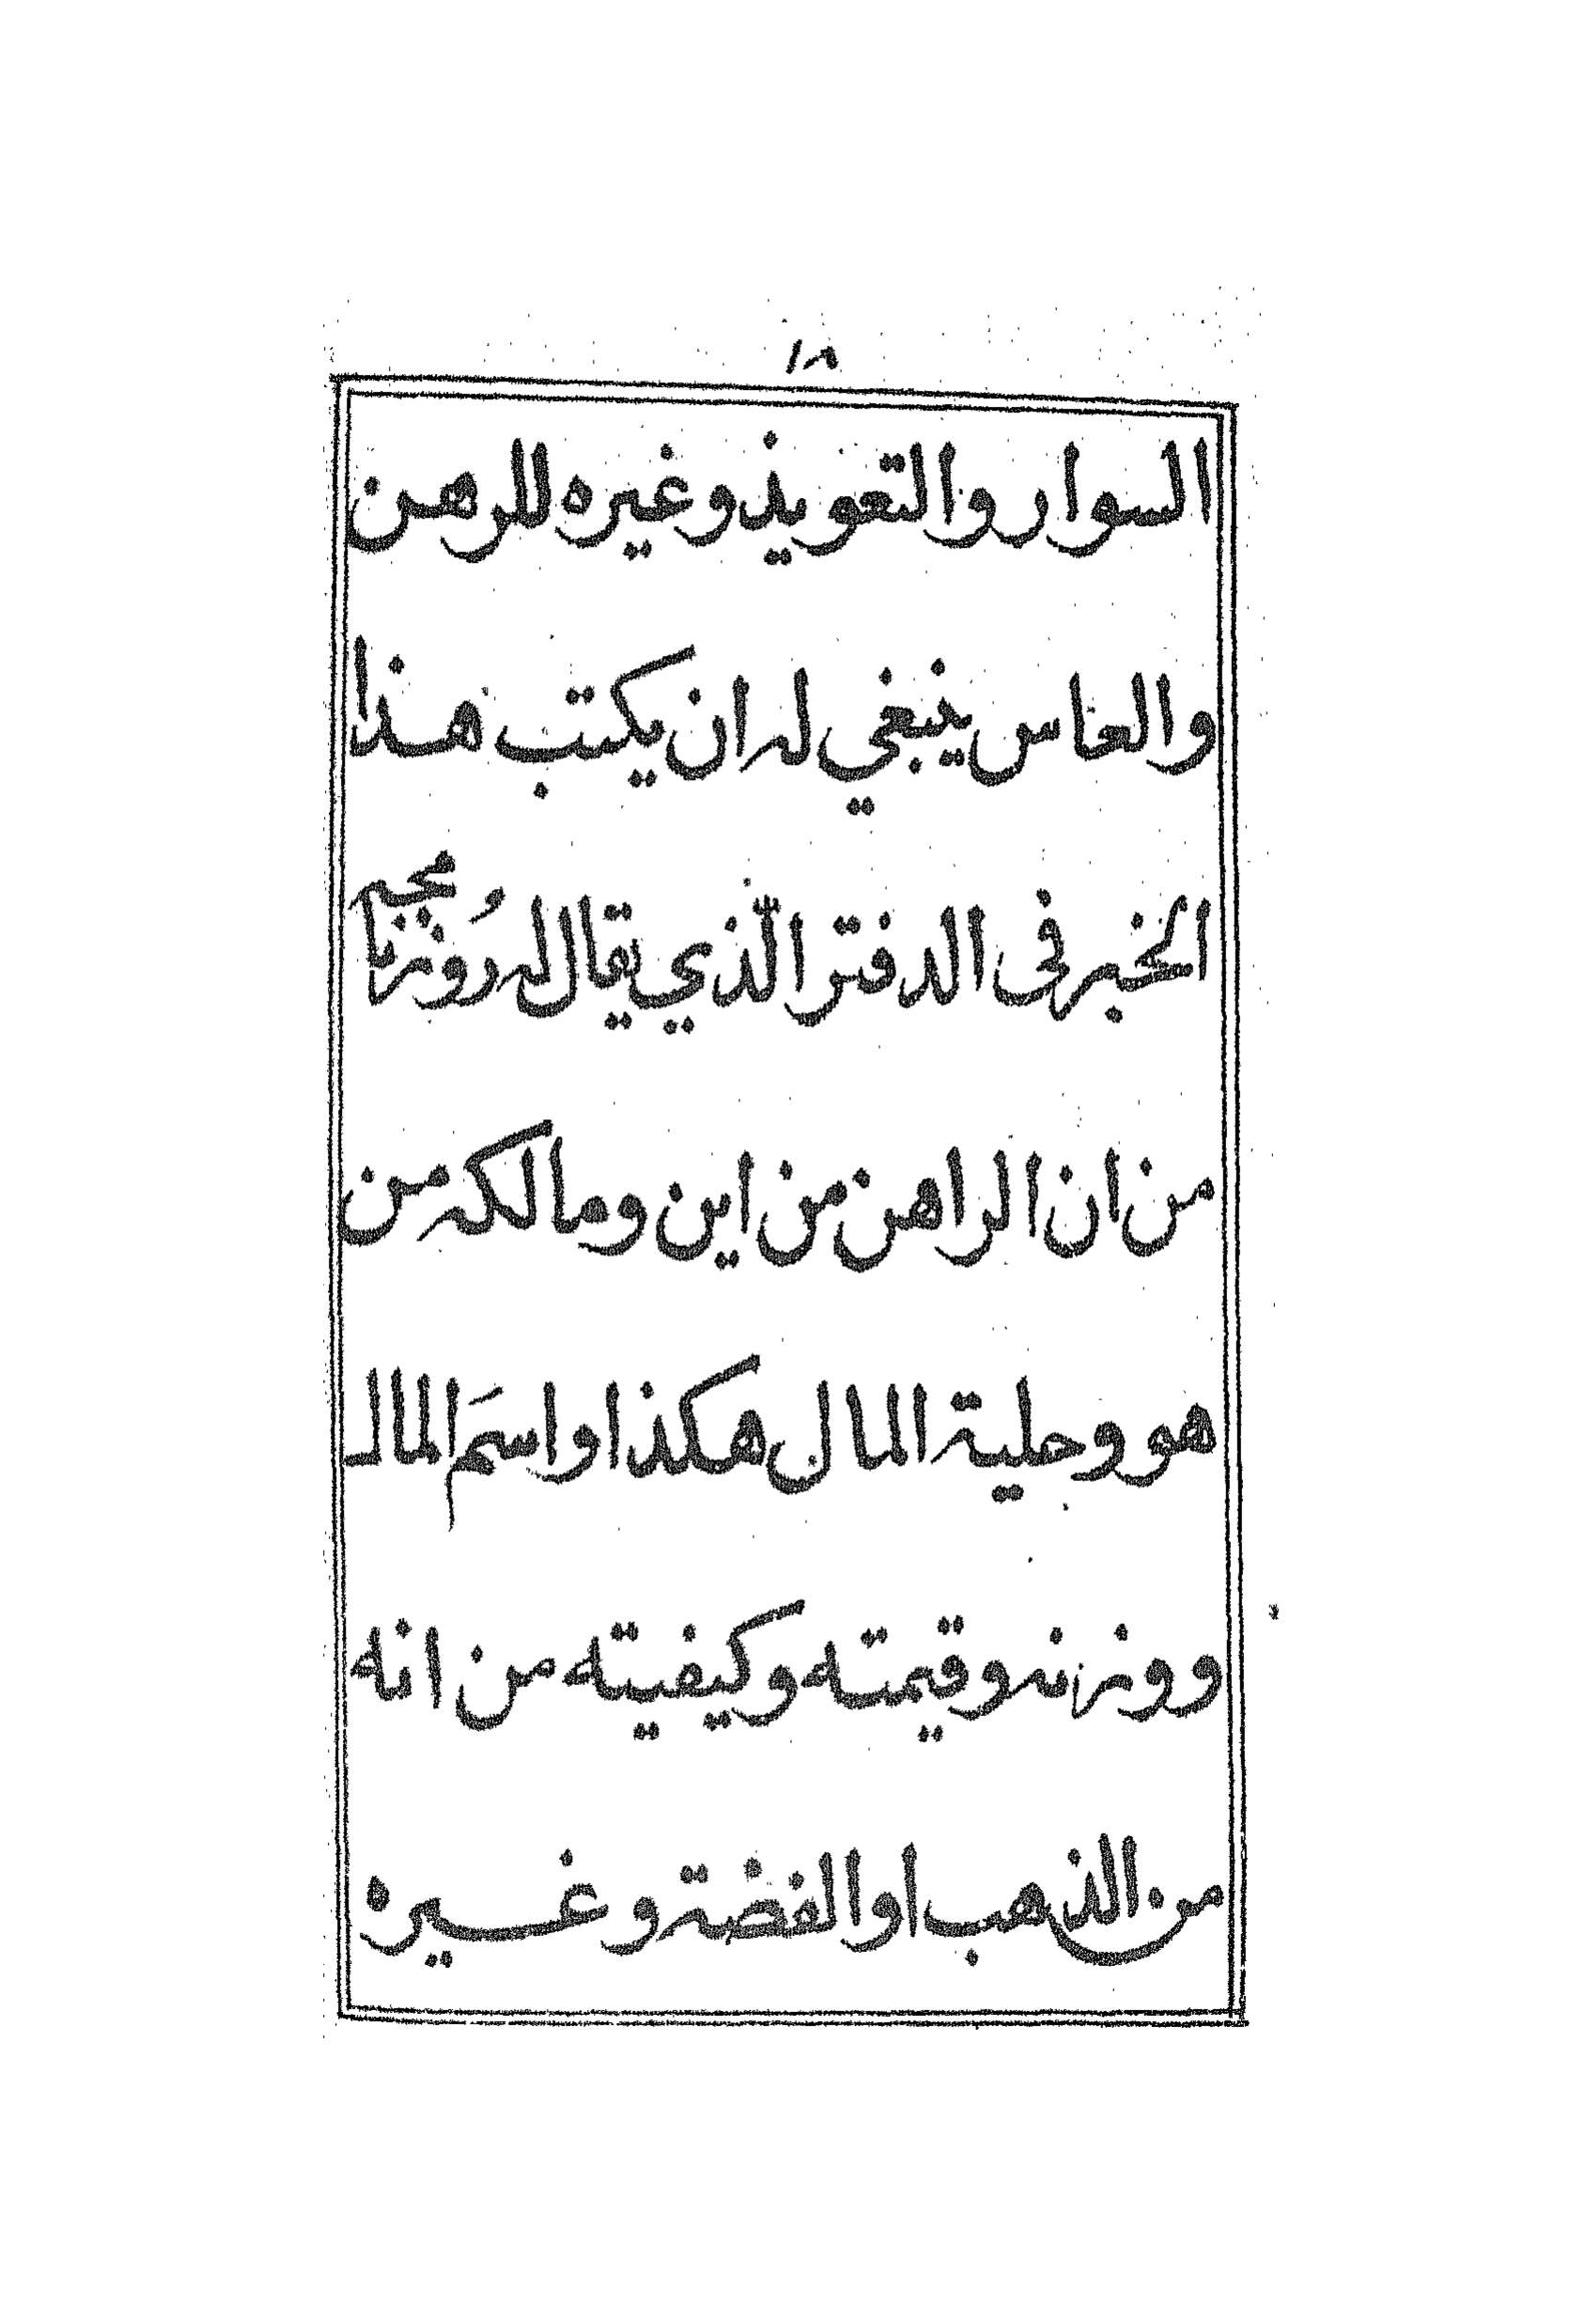 ١٨
السوار والتعويذ وغيره للرهن
والعاس ينبغي له ان يكتب هذا
الخبر في الدفتر الّذي يقال له رُوزنا مجه
من ان الراهن من اين ومالكه من
هو وحلية المال هكذا واسَم المال
ووزنه وقيمته وكيفيته من انه
من الذهب او الفضة وغيره